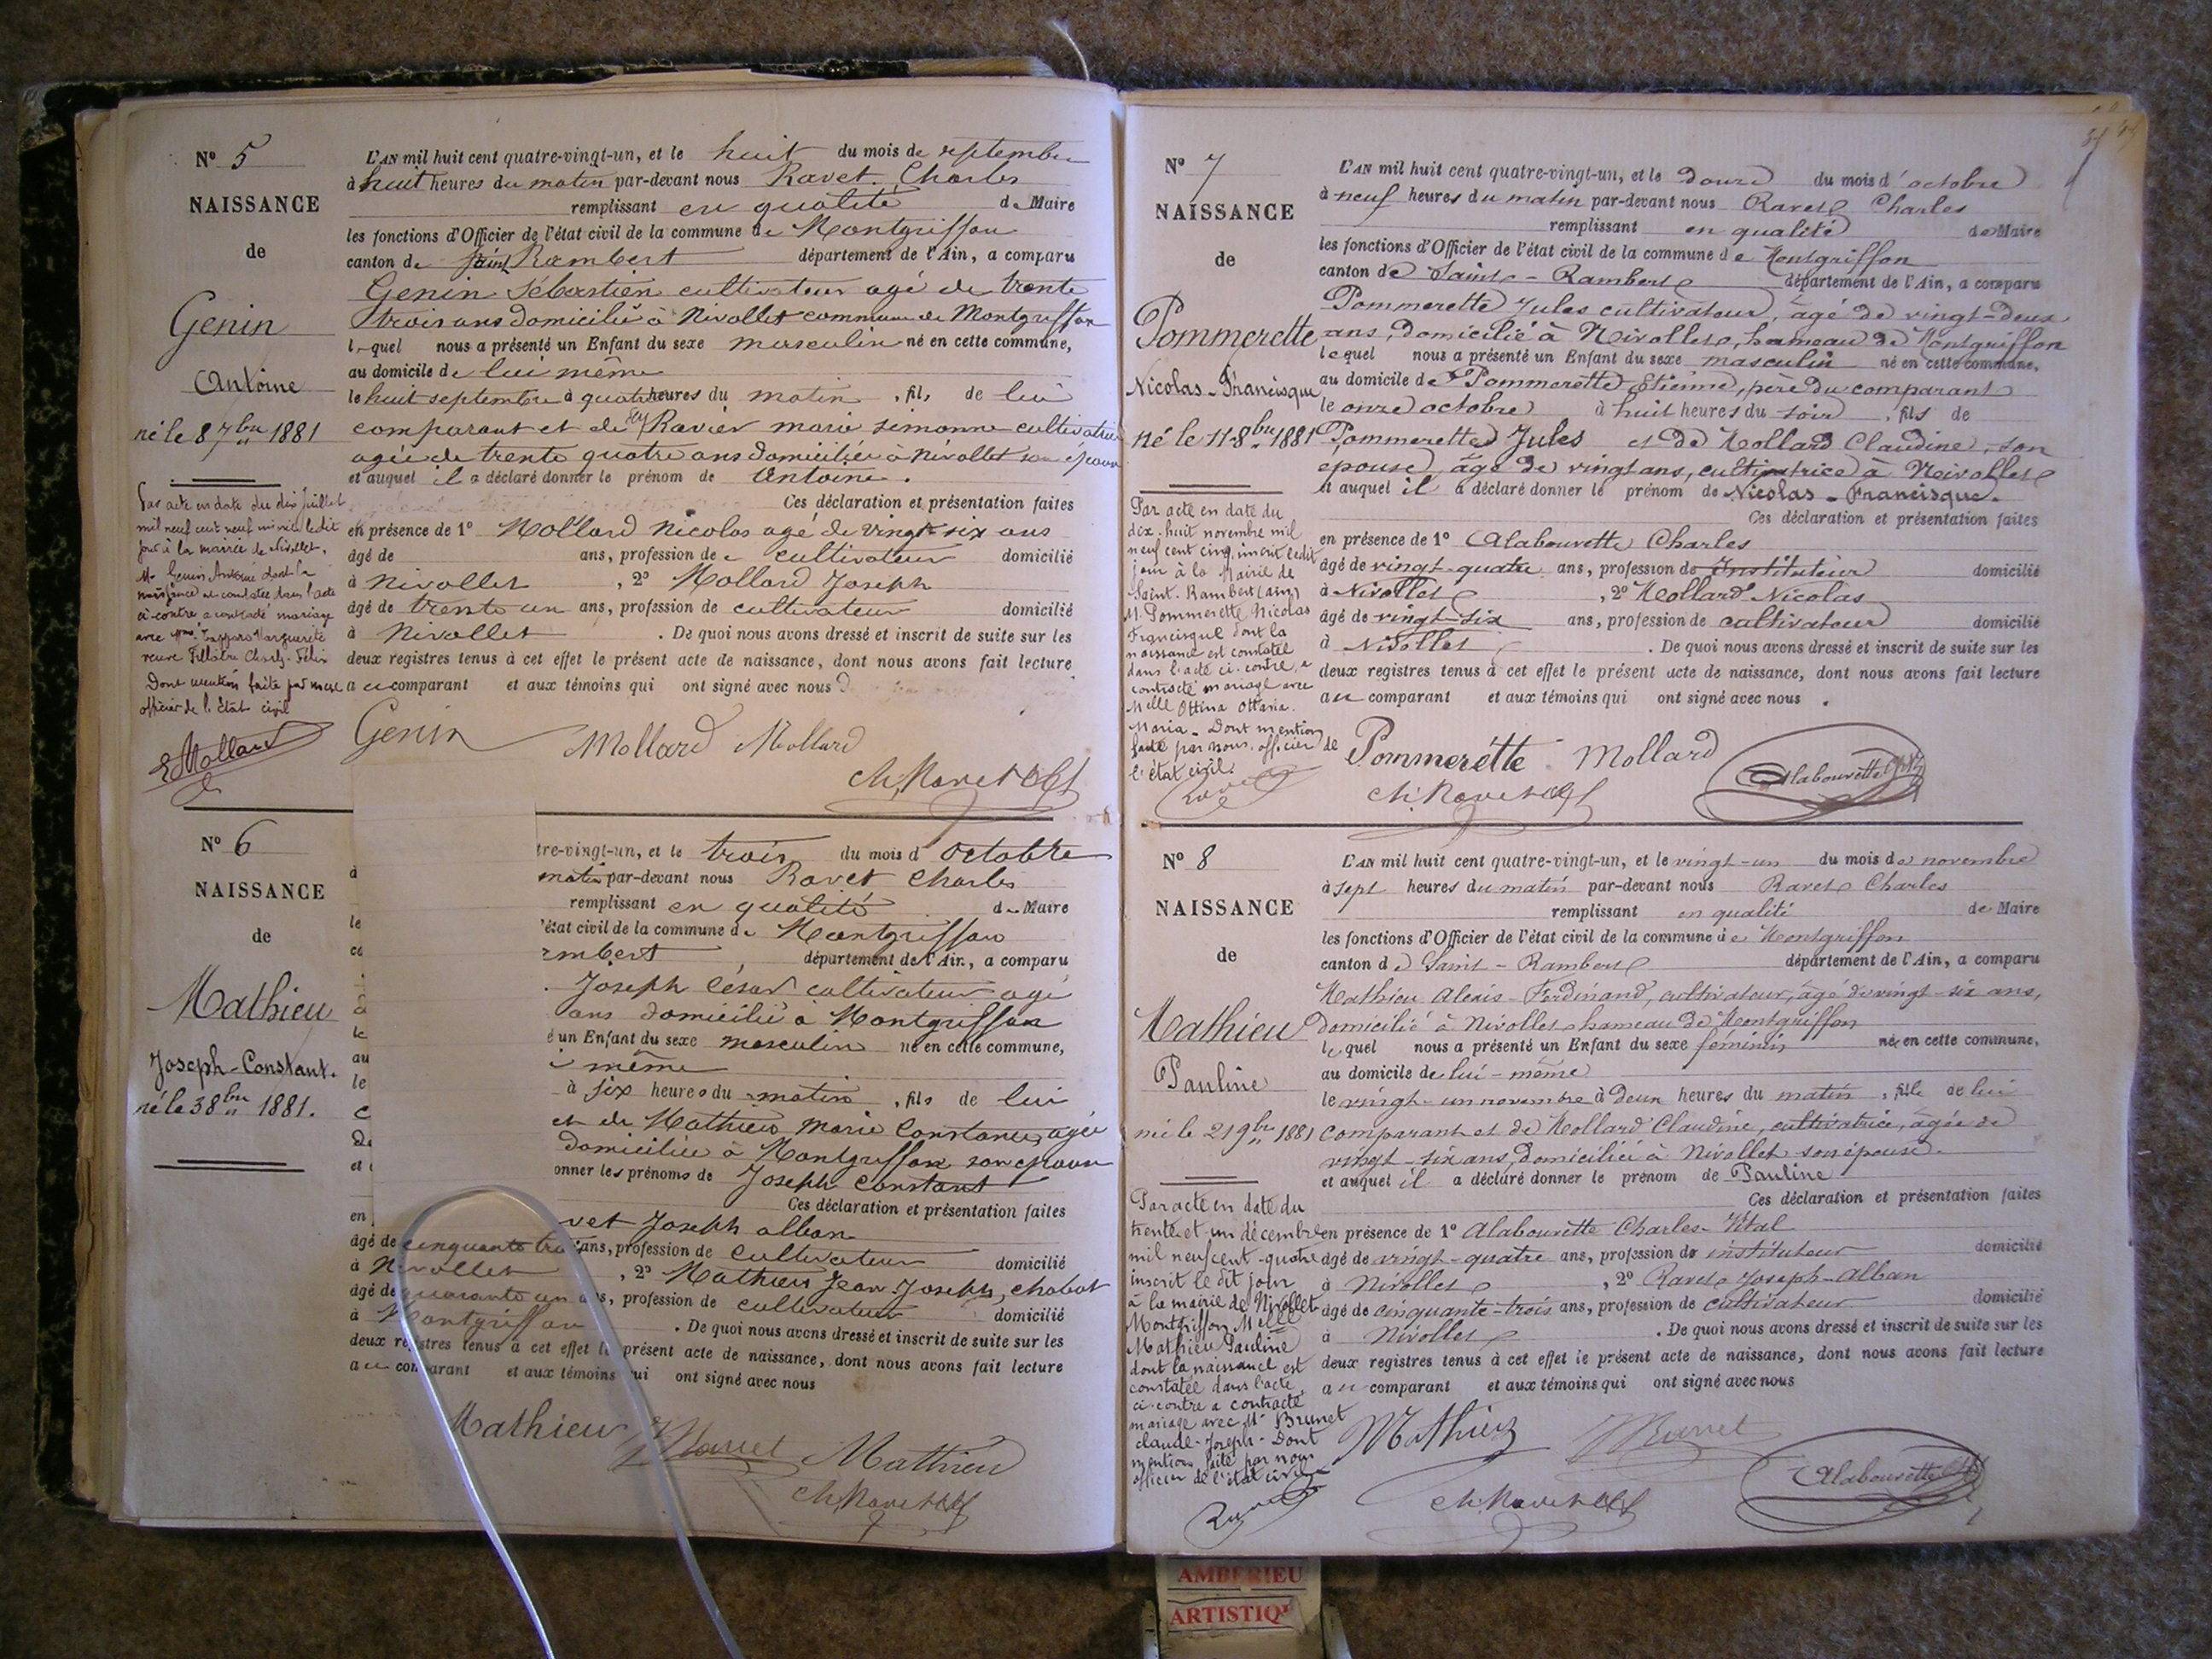 N° 5
NAISSANCE
de
Genin
Antoine
né le 8 7bre 1881
Par acte en date du dix juillet
mil neuf cent neuf inscrit le dit
jour à la mairie de Nivollet,
Mr Genin Antoine dont la
naissance est constatée dans l'acte
ci-contre a contracté mariage
avec Marguerite
veuve Charles-Félix
Dont mention faite par nous
officier de l'état civil
Mollard
L'AN mil huit cent quatre-vingt-un, et le huit du mois de septembre
à huit heures du matin par-devant nous Ravet Charles
remplissant en qualité de Maire
les fonctions d'Officier de l'état civil de la commune de Montgriffon
canton de Saint Rambert département de l'Ain, a comparu
Genin Sébastien cultivateur agé de trente
trois ans domicilié à Nivollet commune de Montgriffon
lequel nous a présenté un Enfant du sexe masculin né en cette commune,
au domicile de lui même
le huit septembre à quatre heures du matin, fils de lui
comparant et de Ravier marie simonne cultivatrice
agée de trente quatre ans domiciliée à Nivollet son épouse
et auquel il a déclaré donner le prénom de Antoine.
Ces déclaration et présentation faites
en présence de 1° Mollard Nicolas agé de vingt-six ans
âgé de ans, profession de cultivateur domicilié
à Nivollet, 2° Mollard Joseph
âgé de trente un ans, profession de cultivateur domicilié
à Nivollet. De quoi nous avons dressé et inscrit de suite sur les
deux registres tenus à cet effet le présent acte de naissance, dont nous avons fait lecture
au comparant et aux témoins qui ont signé avec nous
Genin Mollard Mollard
Ch. Ravet
N° 6
NAISSANCE
de
Mathieu
Joseph-Constant.
né le 3 8bre 1881.
tre-vingt-un, et le trois du mois d'octobre
à matin par-devant nous Ravet Charles
remplissant en qualité de Maire
le 'état civil de la commune de Montgriffon
ca mbert département de l'Ain, a comparu
Joseph César cultivateur agé
ans domicilié à Montgriffon
le é un Enfant du sexe masculin né en cette commune,
au i même
le à six heures du matin, fils de lui
c et de Mathieu Marie Constance, agée
de domiciliée à Montgriffon son épouse
et onner les prénoms de Joseph Constant
Ces déclaration et présentation faites
en vet Joseph alban
âgé de cinquante trois ans, profession de cultivateur domicilié
à Nivollet, 2° Mathieu Jean Joseph, chabot
âgé de quarante un ans, profession de cultivateur domicilié
à Montgriffon. De quoi nous avons dressé et inscrit de suite sur les
deux registres tenus à cet effet le présent acte de naissance, dont nous avons fait lecture
au comparant et aux témoins qui ont signé avec nous
Mathieu Ravet Mathieu
Ch. Ravet
N° 7
NAISSANCE
de
Pommerette
Nicolas-Francisque
né le 11 8bre 1881
Par acte en date du
dix-huit novembre mil
neuf cent cinq, inscrit ledit
jour à la Mairie de
Saint-Rambert (Ain)
M. Pommerette Nicolas
Francisque dont la
naissance est constatée
dans l'acte ci-contre, a
contracté mariage avec
Melle Ottina Ottavia
Maria - Dont mention
faite par nous officier de
l'état civil.
L'AN mil huit cent quatre-vingt-un, et le douze du mois d'octobre
à neuf heures du matin par-devant nous Ravet Charles
remplissant en qualité de Maire
les fonctions d'Officier de l'état civil de la commune de Montgriffon
canton de Saint-Rambert département de l'Ain, a comparu
Pommerette Jules cultivateur, âgé de vingt-deux
ans, domicilié à Neivollet, hameau de Montgriffon
lequel nous a présenté un Enfant du sexe masculin né en cette commune,
au domicile de Pommerette Etienne, père du comparant
le onze octobre à huit heures du soir, fils de
Pommerette Jules et de Mollard Claudine, son
épouse, âgé de vingt ans, cultivatrice à Neivollet
et auquel il a déclaré donner le prénom de Nicolas-Francisque.
Ces déclaration et présentation faites
en présence de 1° Alabouvette Charles
âgé de vingt-quatre ans, profession de Instituteur domicilié
à Nivollet, 2° Mollard Nicolas
âgé de vingt-six ans, profession de cultivateur domicilié
à Nivollet. De quoi nous avons dressé et inscrit de suite sur les
deux registres tenus à cet effet le présent acte de naissance, dont nous avons fait lecture
au comparant et aux témoins qui ont signé avec nous.
Pommerétte Mollard Alabouvette
Ch. Ravet
N° 8
NAISSANCE
de
Mathieu
Pauline
née le 21 9bre 1881
Par acte en date du
trente et un décembre
mil neuf cent-quatre
inscrit le dit jour
à la mairie de Nivollet
Montgriffon Melle
Mathieu Pauline
dont la naissance est
constatée dans l'acte
ci-contre a contracté
mariage avec Mr Brunet
Claude-Joseph - Dont
mention faite par nous
officier de l'état civil
L'AN mil huit cent quatre-vingt-un, et le vingt-un du mois de novembre
à sept heures du matin par-devant nous Ravet Charles
remplissant en qualité de Maire
les fonctions d'Officier de l'état civil de la commune de Montgriffon
canton de Saint-Rambert département de l'Ain, a comparu
Mathieu Alexis-Ferdinand, cultivateur, âgé de vingt-six ans,
domicilié à Nivollet hameau de Montgriffon
lequel nous a présenté un Enfant du sexe féminin née en cette commune,
au domicile de lui-même
le vingt-un novembre à deux heures du matin, fille de lui
comparant et de Mollard Claudine, cultivatrice, âgée de
vingt-six ans, domiciliée à Nivollet son épouse.
et auquel il a déclaré donner le prénom de Pauline
Ces déclaration et présentation faites
en présence de 1° Alabouvette Charles-Vital
âgé de vingt-quatre ans, profession de instituteur domicilié
à Nivollet, 2° Ravet Joseph-Alban
âgé de cinquante-trois ans, profession de cultivateur domicilié
à Nivollet. De quoi nous avons dressé et inscrit de suite sur les
deux registres tenus à cet effet le présent acte de naissance, dont nous avons fait lecture
au comparant et aux témoins qui ont signé avec nous
Mathieu Ravet
Ch. Ravet Alabouvette
AMBERIEU
ARTISTIQ